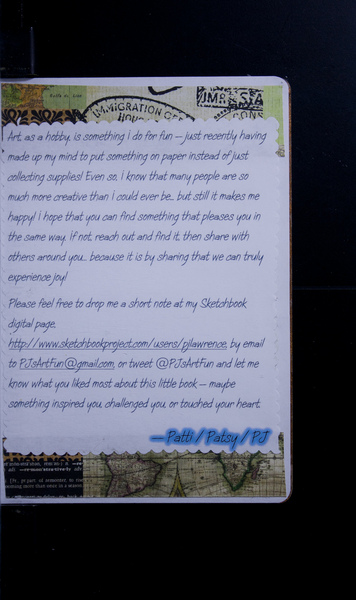 IMMIGRATION OFF
HOU
JMR STA
CONS
Art, as a hobby, is something I do for fun -- just recently having
made up my mind to put something on paper instead of just
collecting supplies! Even so, I know that many people are so
much more creative than I could ever be... but still it makes me
happy! I hope that you can find something that pleases you in
the same way. If not, reach out and find it, then share with
others around you... because it is by sharing that we can truly
experience joy!
Please feel free to drop me a short note at my Sketchbook
digital page,
http://www.sketchbookproject.com/users/pjlawrence, by email
to PJsArtFun@gmail.com, or tweet @PJsArtFun and let me
know what you liked most about this little book -- maybe
something inspired you, challenged you, or touched your heart.
--Patti / Patsy / PJ